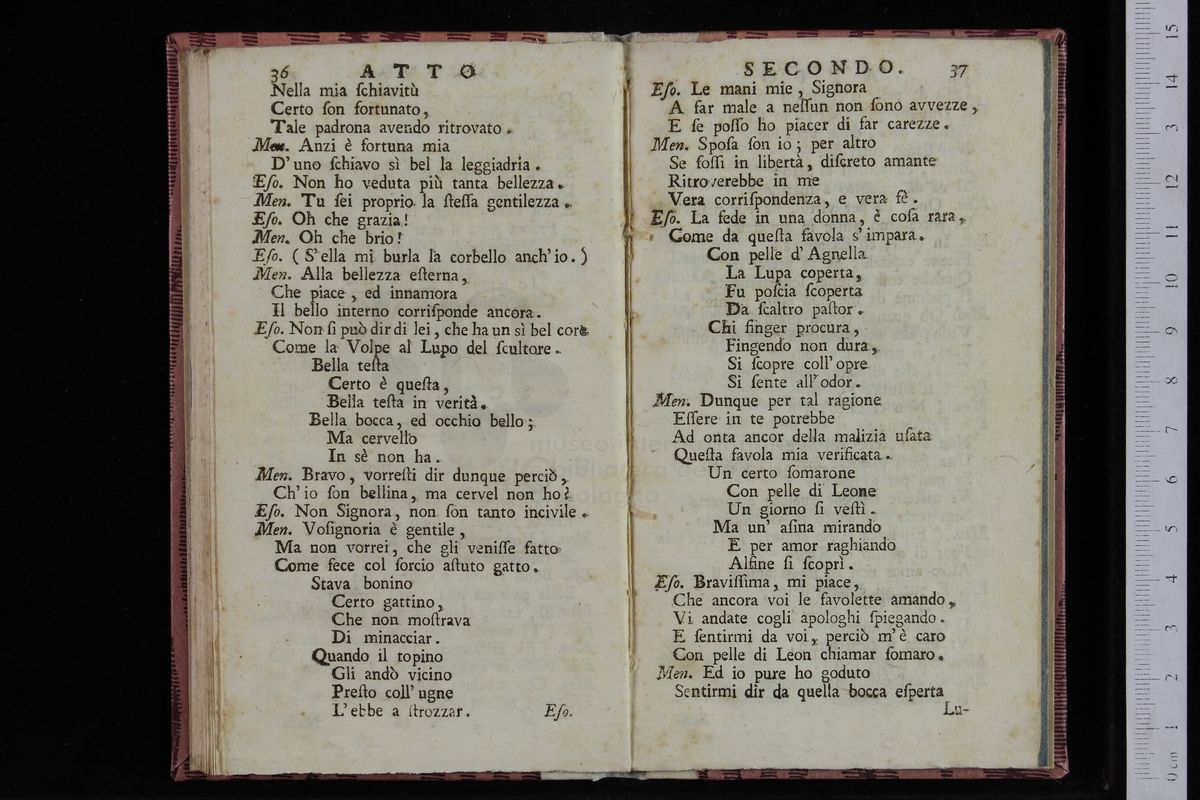 36 ATTO
Nella mia ſchiavitù
Certo ſon fortunato,
Tale padrona avendo ritrovato.
Men. Anzi è fortuna mia
D'uno ſchiavo sì bel la leggiadria.
Eſo. Non ho veduta più tanta bellezza.
Men. Tu ſei proprio la ſteſſa gentilezza.
Eſo. Oh che grazia!
Men. Oh che brio!
Eſo. (S'ella mi burla la corbello anch'io.)
Men. Alla bellezza eſterna,
Che piace, ed innamora
Il bello interno corriſponde ancora.
Eſo. Non ſi può dir di lei, che ha un sì bel core
Come la Volpe al Lupo del ſcultore.
Bella teſta
Certo è queſta,
Bella teſta in verità.
Bella bocca, ed occhio bello;
Ma cervello
In sè non ha.
Men. Bravo, vorreſti dir dunque perciò,
Ch'io ſon bellina, ma cervel non ho?
Eſo. Non Signora, non ſon tanto incivile.
Men. Voſignoria è gentile,
Ma non vorrei, che gli veniſſe fatto
Come fece col ſorcio aſtuto gatto.
Stava bonino
Certo gattino,
Che non moſtrava
Di minacciar.
Quando il topino
Gli andò vicino
Preſto coll'ugne
L'ebbe a ſtrozzar. Eſo.
SECONDO. 37
Eſo. Le mani mie, Signora
A far male a neſſun non ſono avvezze,
E ſe poſſo ho piacer di far carezze.
Men. Spoſa ſon io; per altro
Se foſſi in libertà, diſcreto amante
Ritroverebbe in me
Vera corriſpondenza, e vera fê.
Eſo. La fede in una donna, è coſa rara,
Come da queſta favola s'impara.
Con pelle d'Agnella
La Lupa coperta,
Fu poſcia ſcoperta
Da ſcaltro paſtor.
Chi finger procura,
Fingendo non dura,
Si ſcopre coll'opre
Si ſente all'odor.
Men. Dunque per tal ragione
Eſſere in te potrebbe
Ad onta ancor della malizia uſata
Queſta favola mia verificata.
Un certo ſomarone
Con pelle di Leone
Un giorno ſi veſtì.
Ma un'aſina mirando
E per amor raghiando
Alfine ſi ſcoprì.
Eſo. Braviſſima, mi piace,
Che ancora voi le favolette amando,
Vi andate cogli apologhi ſpiegando.
E ſentirmi da voi, perciò m'è caro
Con pelle di Leon chiamar ſomaro.
Men. Ed io pure ho goduto
Sentirmi dir da quella bocca eſperta
Lu-
0 cm 1 2 3 4 5 6 7 8 9 10 11 12 13 14 15